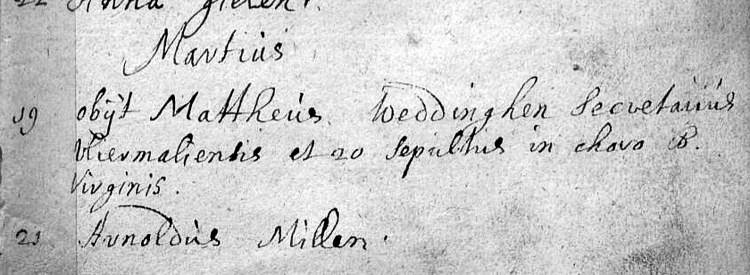 22 Anna Gielen.
Martius
19 obijt Mattheus Weddinghen Secretarius
Vliermaliensis et 20 sepultus in choro B.
Virginis.
21 Arnoldus Millen.